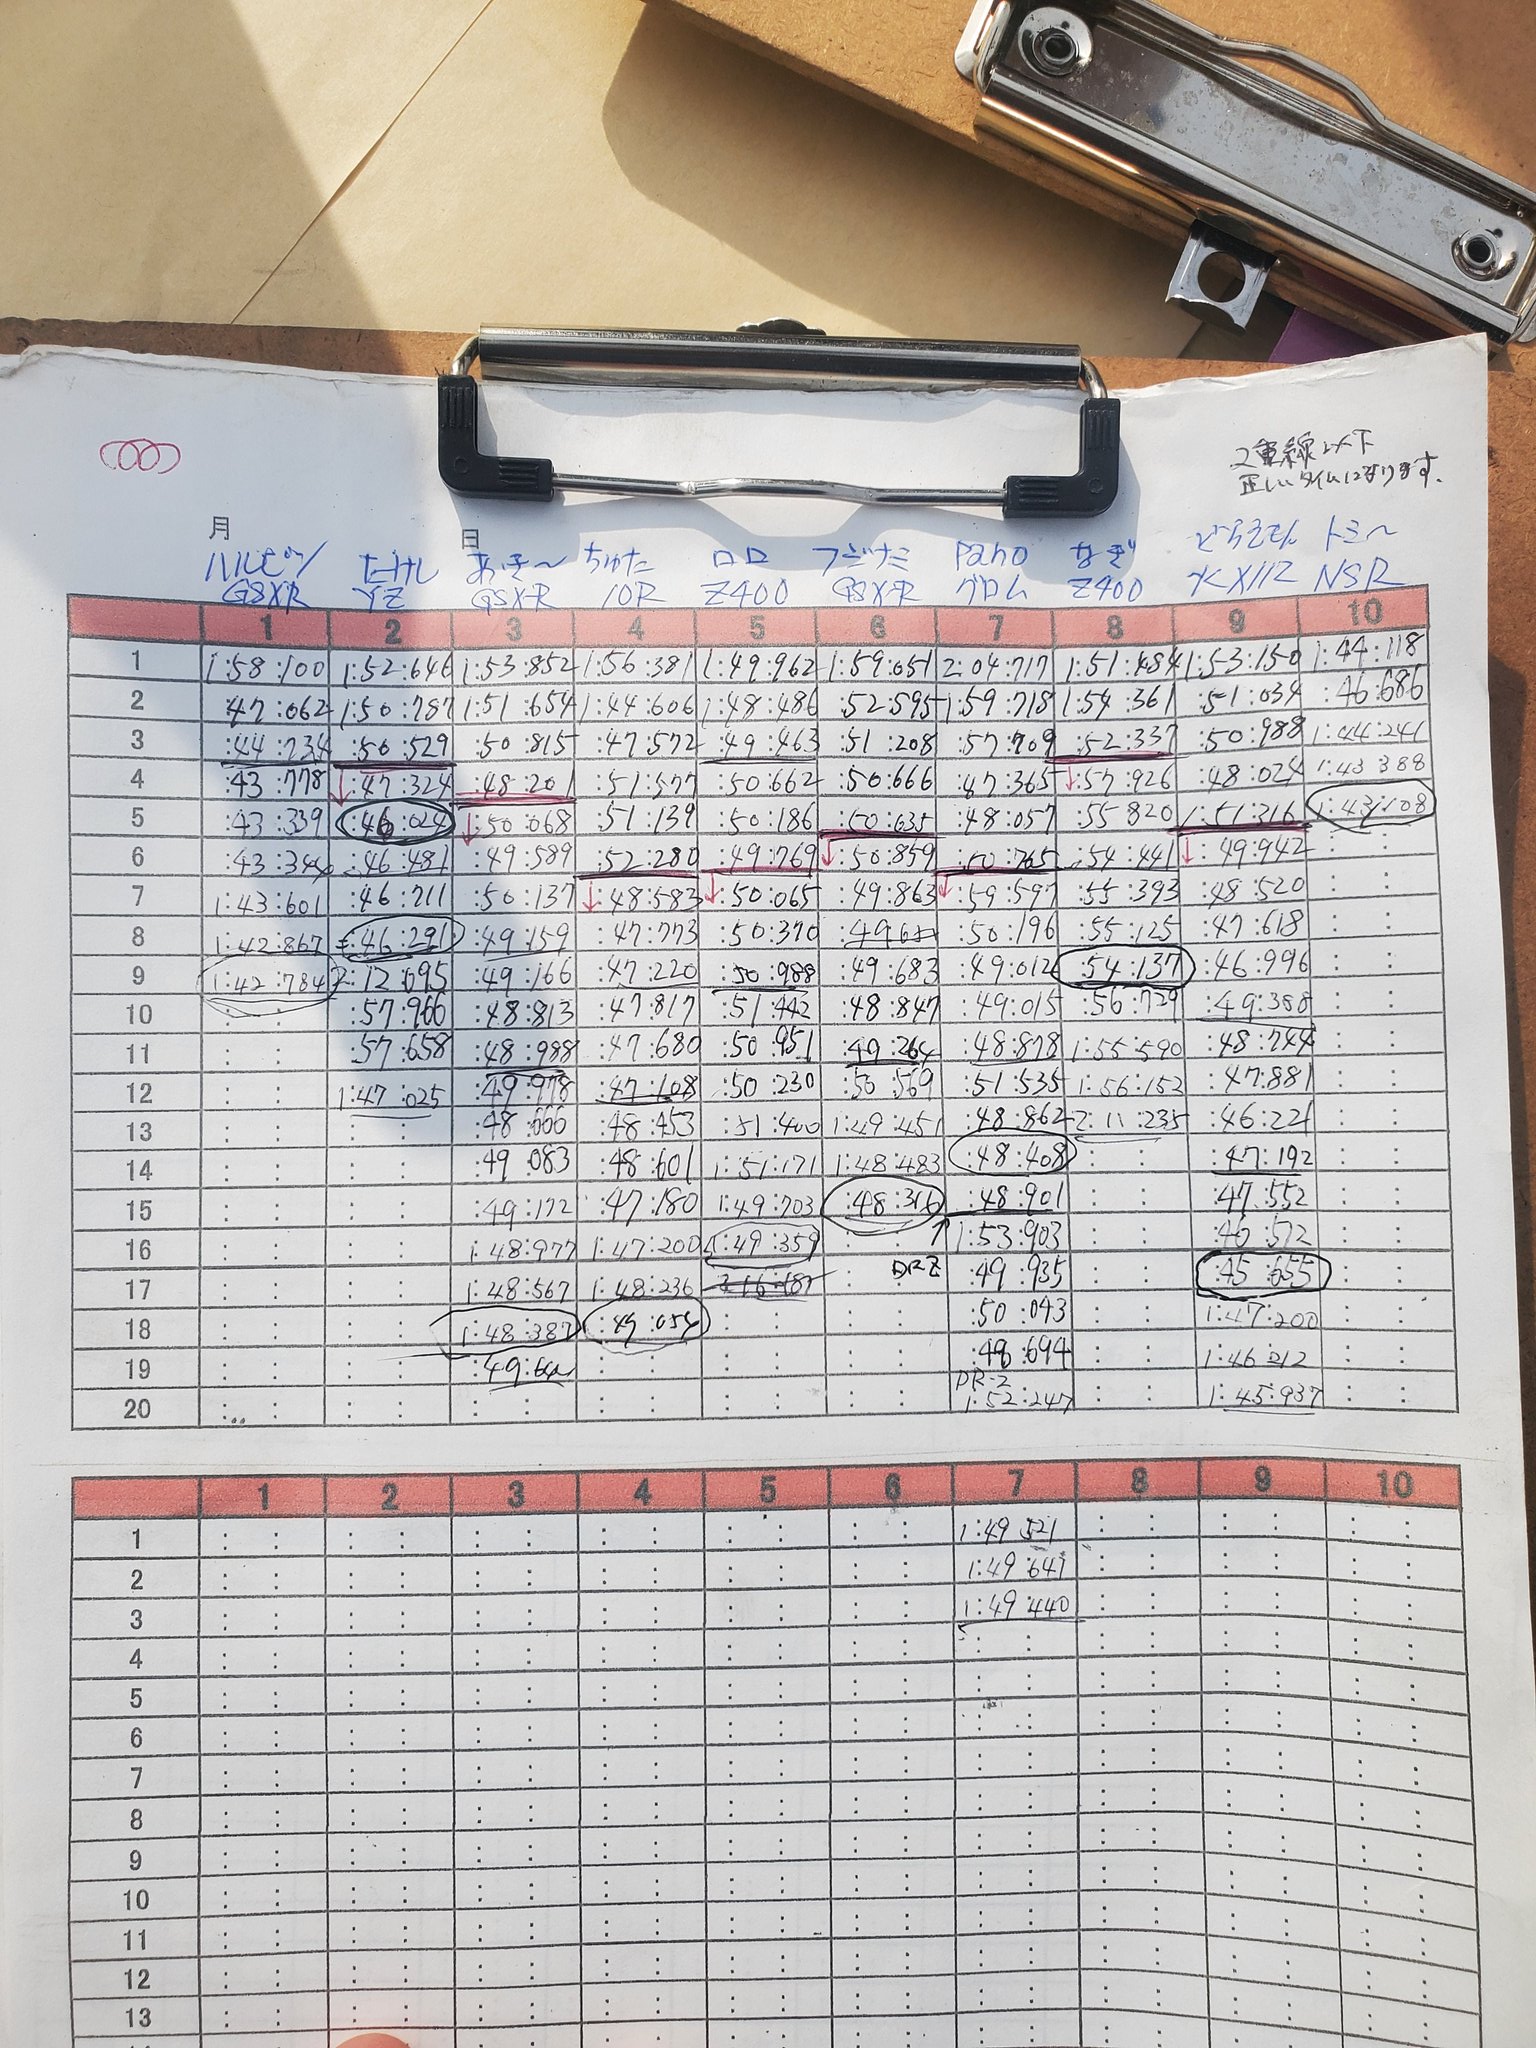 2重線以下
正しいタイムになります。
月 日
ハルピン たけし あき〜 ちゅた ロロ フジナミ pano なぎ どらえもん トミ〜
GSXR YZ GSX-R 10R Z400 GSX-R グロム Z400 KX112 NSR
1 2 3 4 5 6 7 8 9 10
1 1:58:100 1:52:646 1:53:852 1:56:381 1:49:962 1:59:051 2:04:717 1:51:484 1:53:150 1:44:118
2 :47:062 1:50:787 1:51:654 1:44:606 1:48:486 :52:595 1:59:718 1:54:361 :51:034 :46:686
3 :44:734 :50:529 :50:815 :47:572 :49:463 :51:208 :57:709 :52:337 :50:988 1:44:241
4 :43:778 :47:324 :48:201 :51:577 :50:662 :50:666 :47:365 :57:926 :48:024 1:43:388
5 :43:339 :46:024 :50:068 :51:139 :50:186 :50:635 :48:057 :55:820 1:51:316 1:43:108
6 :43:344 :46:481 :49:589 :52:280 :49:769 :50:859 :50:765 :54:441 :49:942
7 1:43:601 :46:711 :50:137 :48:583 :50:065 :49:863 :59:597 :55:393 :48:520
8 1:42:867 :46:291 :49:159 :47:773 :50:370 :50:196 :55:125 :47:618
9 1:42:784 2:12:095 :49:166 :47:220 :50:988 :49:683 :49:012 :54:137 :46:996
10 :57:966 :48:813 :47:817 :51:442 :48:847 :49:015 :56:729 :49:388
11 :57:658 :48:988 :47:680 :50:951 :49:264 :48:878 1:55:590 :48:744
12 1:47:025 :49:978 :47:108 :50:230 :50:569 :51:535 1:56:152 :47:881
13 :48:666 :48:453 :51:400 1:49:451 :48:862 2:11:235 :46:221
14 :49:083 :48:601 1:51:171 1:48:483 :48:408 :47:192
15 :49:172 :47:180 1:49:703 :48:316 :48:901 :47:552
16 1:48:977 1:47:200 1:49:359 1:53:903 :46:572
17 1:48:567 1:48:236 DRZ :49:935 :45:655
18 1:48:387 :49:054 :50:043 1:47:200
19 :48:694 1:46:212
20 DR-Z 1:52:247 1:45:937
1 2 3 4 5 6 7 8 9 10
1 1:49:521
2 1:49:641
3 1:49:440
4
5
6
7
8
9
10
11
12
13